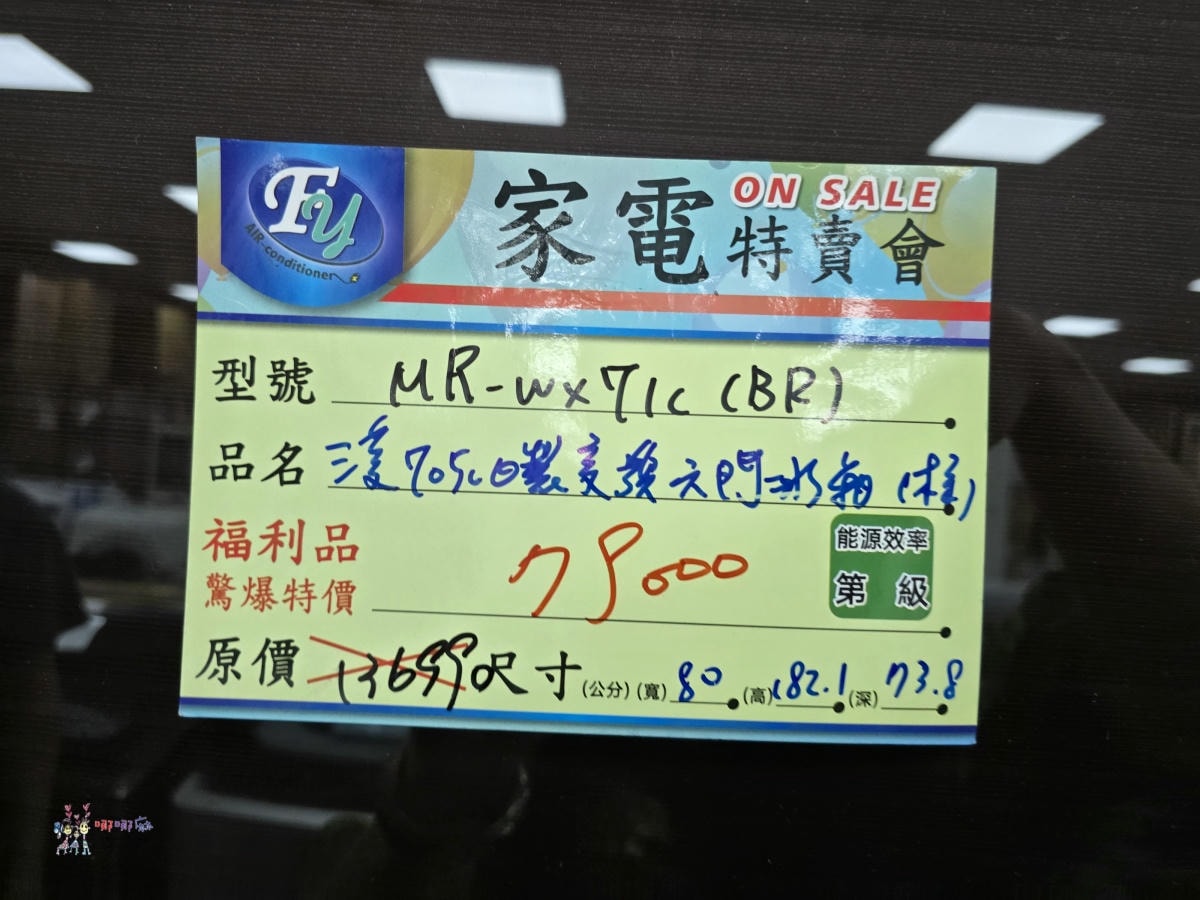 Fy
AIR-conditioner
家電特賣會
ON SALE
型號 MR-WX71C (BR)
品名 三菱705L日製變頻六門冰箱
福利品
驚爆特價 79000
能源效率
第 級
原價 136990 尺寸(公分)(寬) 80 (高) 182.1 (深) 73.8